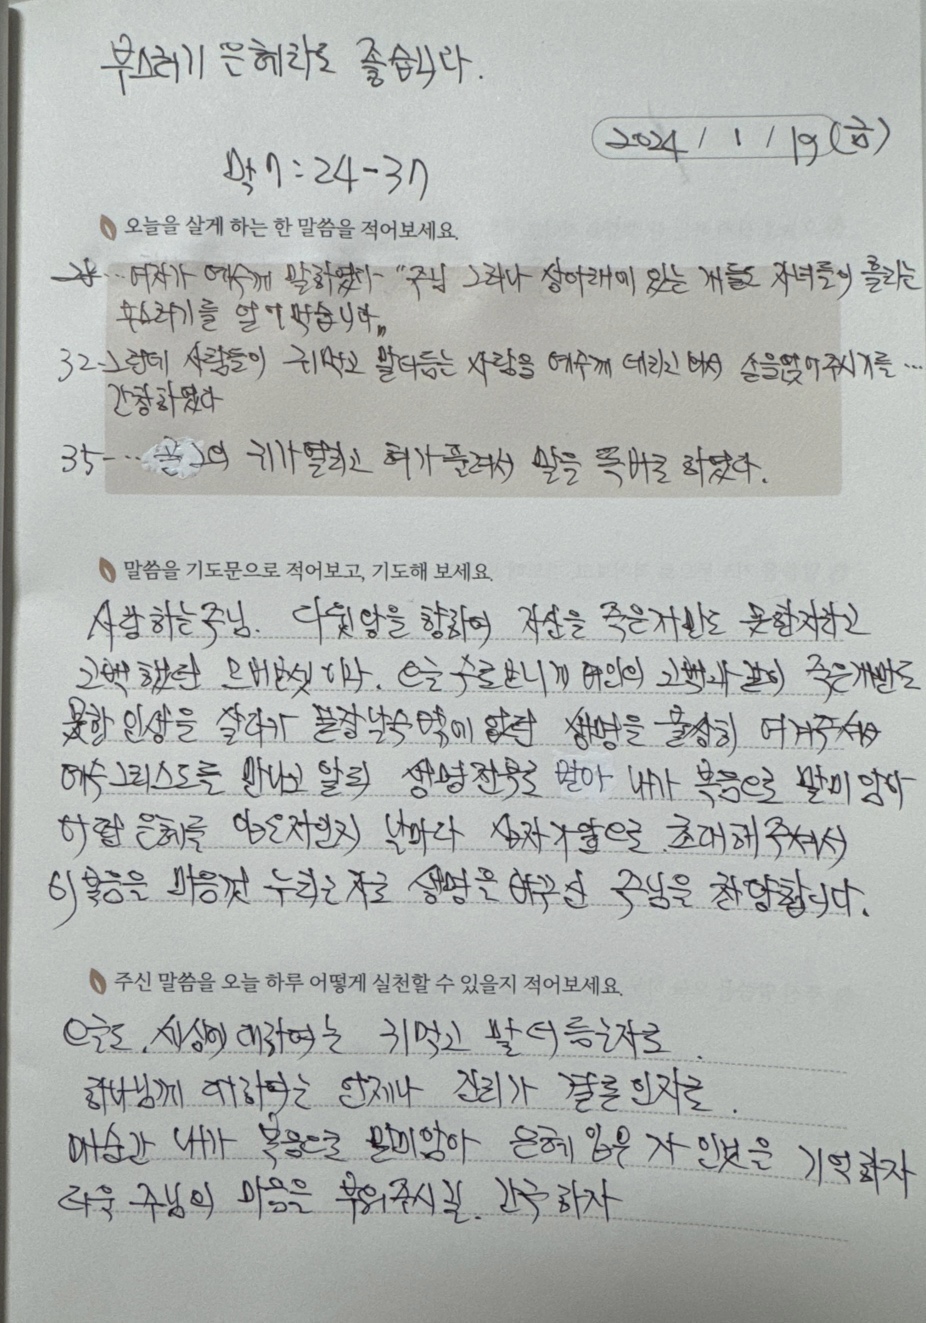 부스러기 은혜라도 좋습니다.
2024 / 1 / 19 (금)
막 7 : 24 - 37
오늘을 살게 하는 한 말씀을 적어보세요.
28 … 여자가 예수께 말하였다- "주님 그러나 상아래에 있는 개들도 자녀들이 흘리는
부스러기를 얻어먹습니다"
32- 그런데 사람들이 귀먹고 말더듬는 사람을 예수께 데리고 와서 손을얹어주시기를 …
간청하였다
35- … 그의 귀가열리고 혀가 풀려서 말을 똑바로 하였다.
말씀을 기도문으로 적어보고, 기도해 보세요.
사랑하는주님. 다윗왕을 향하여 자신을 죽은개만도 못한자라고
고백했던 므비보셋이라. 오늘 수로보니게 여인의 고백과 같이 죽은개만도
못한 인생을 살다가 끝날수밖에 없던 생명을 불쌍히 여겨주셔서
예수그리스도를 만나고 알되 생명전부로 만나 내가 복음으로 말미암아
어떤 은혜를 입은자인지 날마다 십자가앞으로 초대해주셔서
이 복음을 마음껏 누리는자로 생명을 바꾸신 주님을 찬양합니다.
주신 말씀을 오늘 하루 어떻게 실천할 수 있을지 적어보세요.
오늘도 세상에 대하여는 귀먹고 말더듬는자로
하나님께 대하여는 언제나 진리가 결론인자로
매순간 내가 복음으로 말미암아 은혜 입은 자 인것을 기억하자
더욱 주님의 마음을 부어주시길. 간구하자